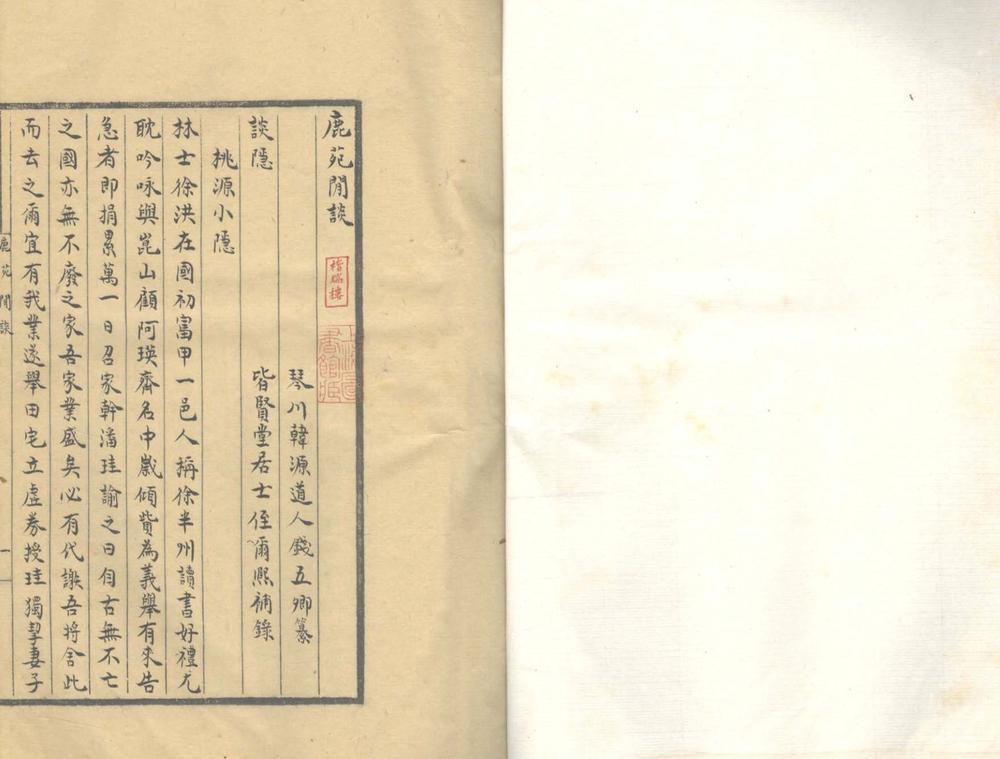 鹿苑閒談
琴川韓源道人錢五卿纂
談隱
皆賢堂居士侄爾熙補錄
桃源小隱
林士徐洪在國初富甲一邑人稱徐半州讀書好禮尤
耽吟咏與崑山顧阿瑛齊名中嵗傾貲為義舉有來告
急者即捐累萬一日召家幹潘珪諭之曰自古無不亡
之國亦無不廢之家吾家業盛矣必有代謝吾將舍此
而去之爾宜有我業遂舉田宅立虛券授珪獨挈妻子
鹿苑閒談
一
稽瑞樓
上海圖書館藏